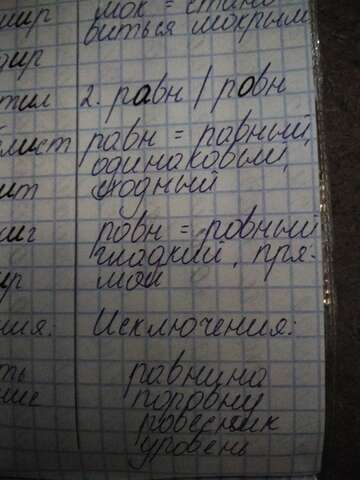 шир
дир
тил
лист
ит
жиг
ир
ния:
ть
ние
мок = стано
виться мокрым
2. равн / ровн
равн = равный,
одинаковый,
сходный
ровн = ровный
гладкий, пря-
мой
Исключения:
равнина
поровну
ровесник
уровень